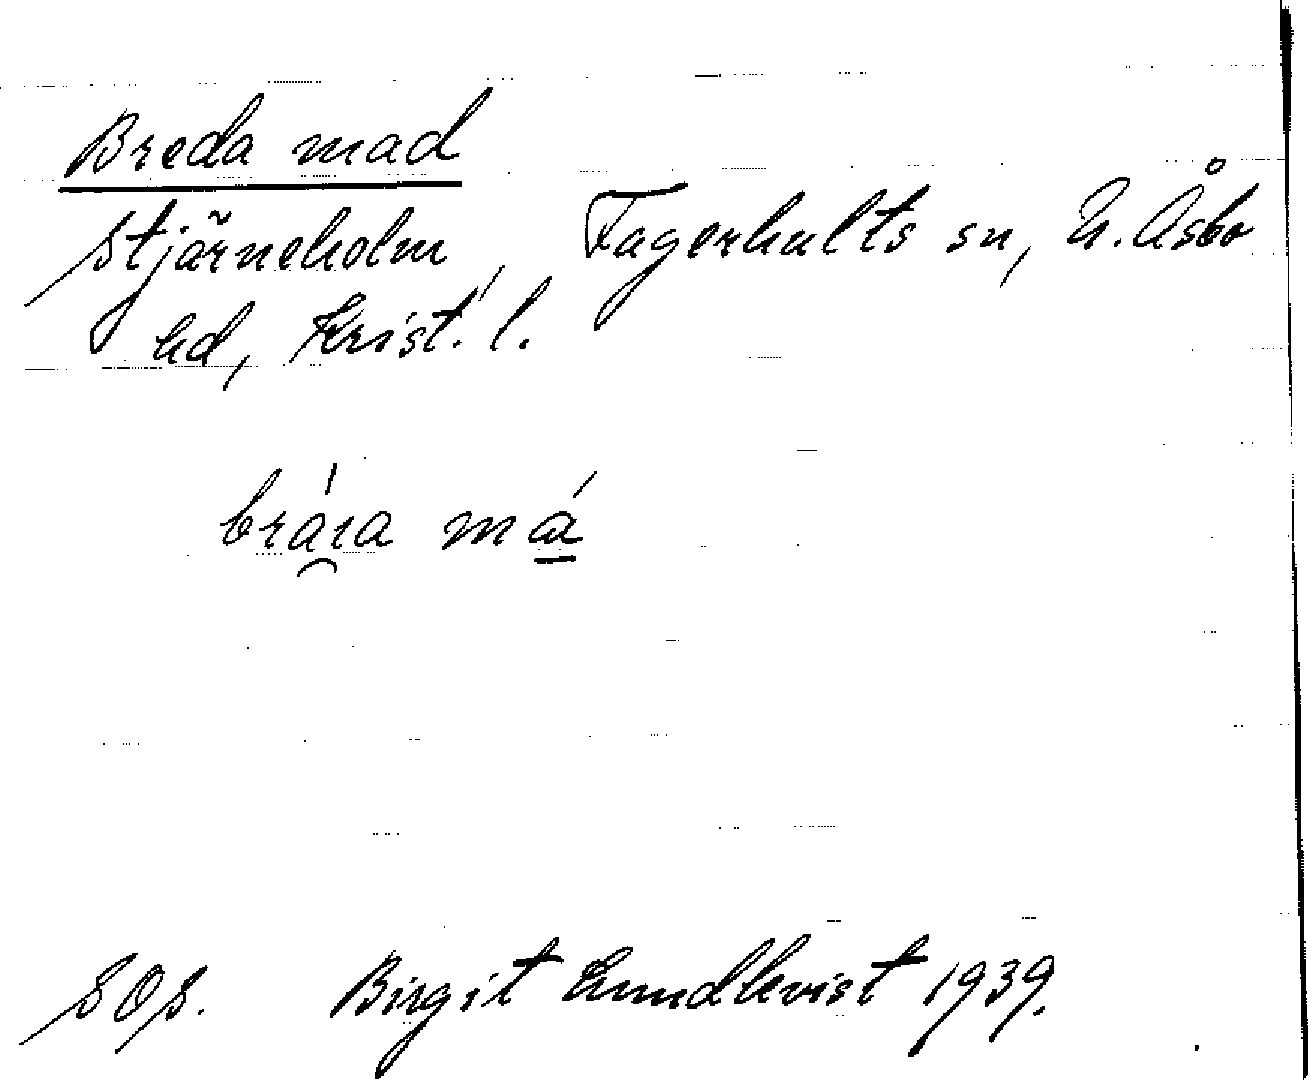 Breda mad
Stjärneholm, Fagerhults sn, N. Åsbo
hd, Krist. l.
brára má
SOS. Birgit Lundkvist 1939.